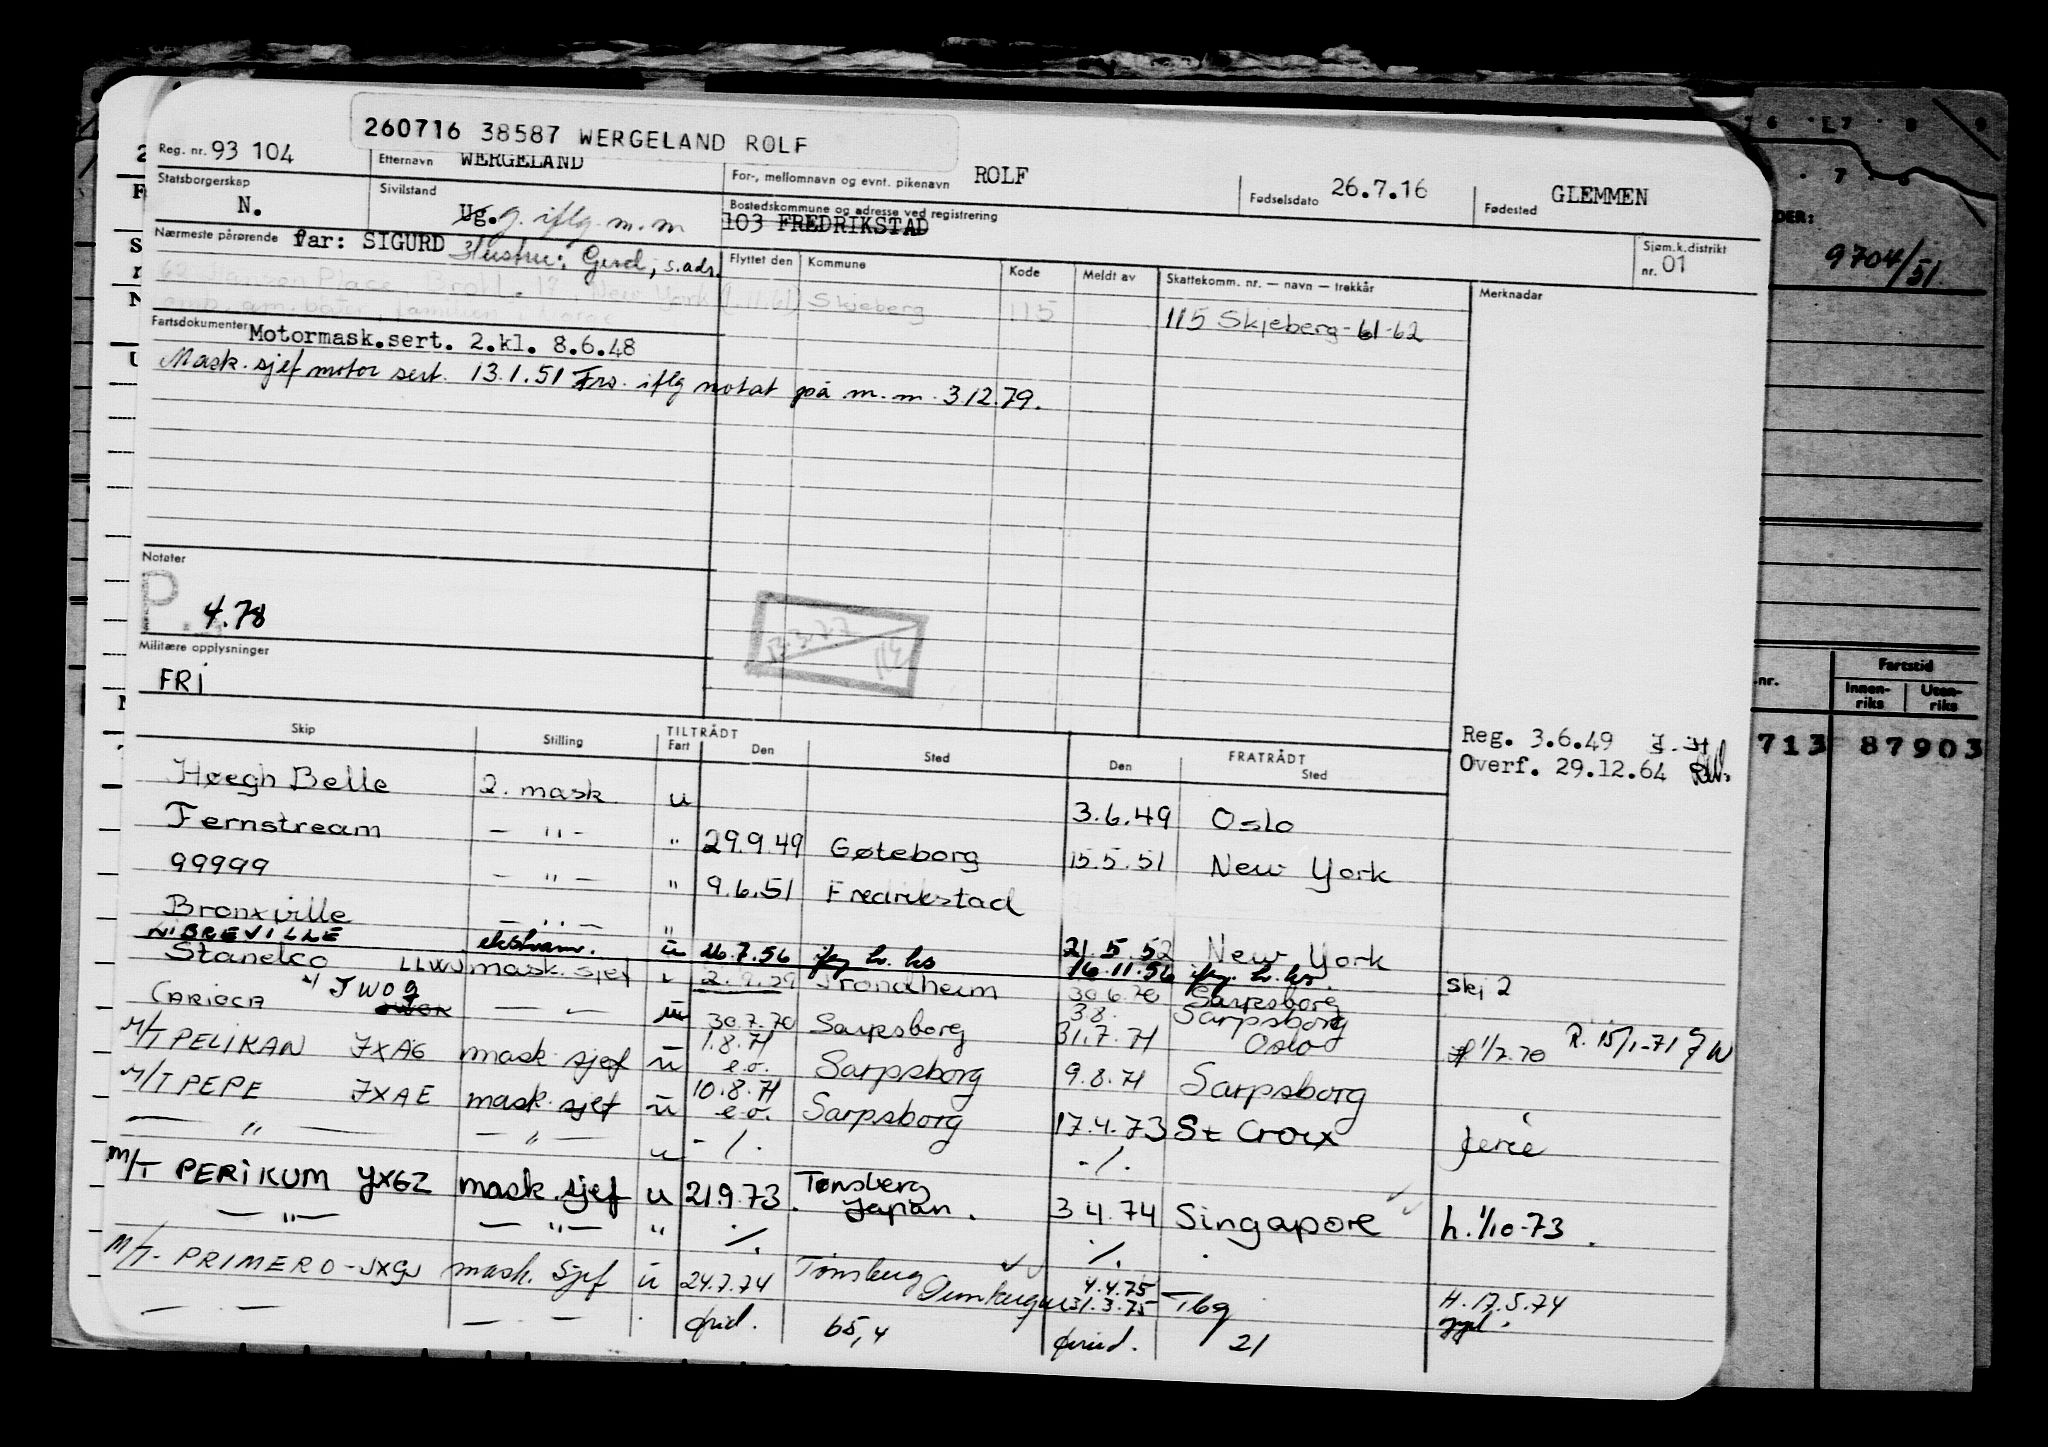 260716 38587 WERGELAND ROLF
Reg. nr. 93 104 Etternavn WERGELAND For-, mellomnavn og evnt. pikenavn ROLF Fødselsdato 26.7.16 Fødested GLEMMEN
Statsborgerskap N. Sivilstand Ug. g. iflg. m.m Bostedskommune og adresse ved registrering 103 FREDRIKSTAD
Nærmeste pårørende far: SIGURD Hustru: Gerd, s.adr. Flyttet den Kommune Kode Meldt av Skattekomm. nr. — navn — trekkår Merknader Sjøm.k.distrikt nr. 01
Skjeberg 115 115 Skjeberg-61-62
Fartsdokumenter Motormask.sert. 2.kl. 8.6.48
Mask.sjef motor sert. 13.1.51 Frs. iflg notat på m.m. 3/12.79.
Notater
P 4.78
Militære opplysninger
FRI
Reg. 3.6.49
Overf. 29.12.64
Skip Stilling TILTRÅDT Fart Den Sted Den FRATRÅDT Sted
Høegh Belle 2. mask. u 3.6.49 Oslo
Fernstream — " — " 29.9.49 Gøteborg 15.5.51 New York
99999 — " — " 9.6.51 Fredrikstad
Bronxville — " — " 21.5.52 New York
LIBREVILLE ekstram. u 26.7.56 16.11.56
Stanelco LLWJ mask. sjef Trondheim 30.6.70 Sarpsborg Skj 2
CARIOCA JWOG — " — 30.7.70 Sarpsborg 31.7.71 Sarpsborg Oslo 1/7.70 R. 15/1-71
M/T PELIKAN JXAG mask. sjef u 1.8.71 e.o. Sarpsborg 9.8.71 Sarpsborg
M/T PEPE JXAE mask. sjef u 10.8.71 e.o. Sarpsborg 17.4.73 St Croix ferie
— " — — " — u -/. -/.
M/T PERIKUM JXGZ mask. sjef u 21.9.73. Tønsberg Japan. 3.4.74 Singapore h. 1/10-73.
— " — — " — " -/. -/.
M/T- PRIMERO - JXGJ mask. Sjef u 24.7.74 Tønsberg 4.4.75 31.3.75 Tbg H. 17.5.74
— — — — 65,4 21
DER:
9704/51.
nr. Fartstid
Innen-riks Uten-riks
713 87903